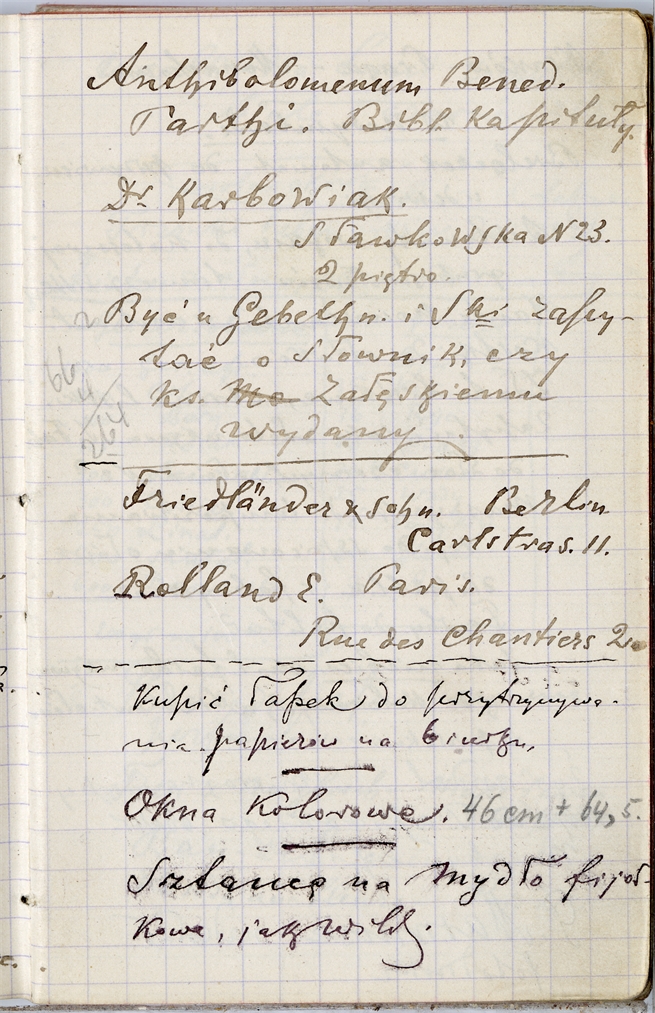 Anthibolomenum Bened.
Parthi. Bibl. Kapituły.
Dr. Karbowiak.
Sławkowska N 23.
2 piętro.
Być u Gebethn. i Ski zapy-
tać o słownik, czy
ks. Załęskiemu
wydany.
66
4
264
Friedländer & Sohn. Berlin
Carlstras. 11.
Rolland E. Paris.
Rue des Chantiers 2.
Kupić łapek do przytrzymywa-
nia papierów na biurku,
Okna Kolorowe. 46 cm + 64,5.
Sztancę na Mydło fijoł-
kowe, jak